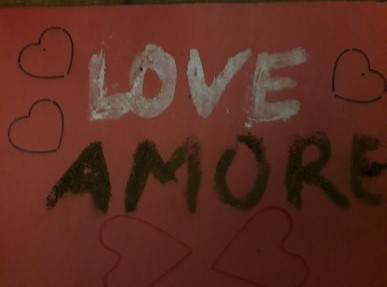 LOVE
AMORE